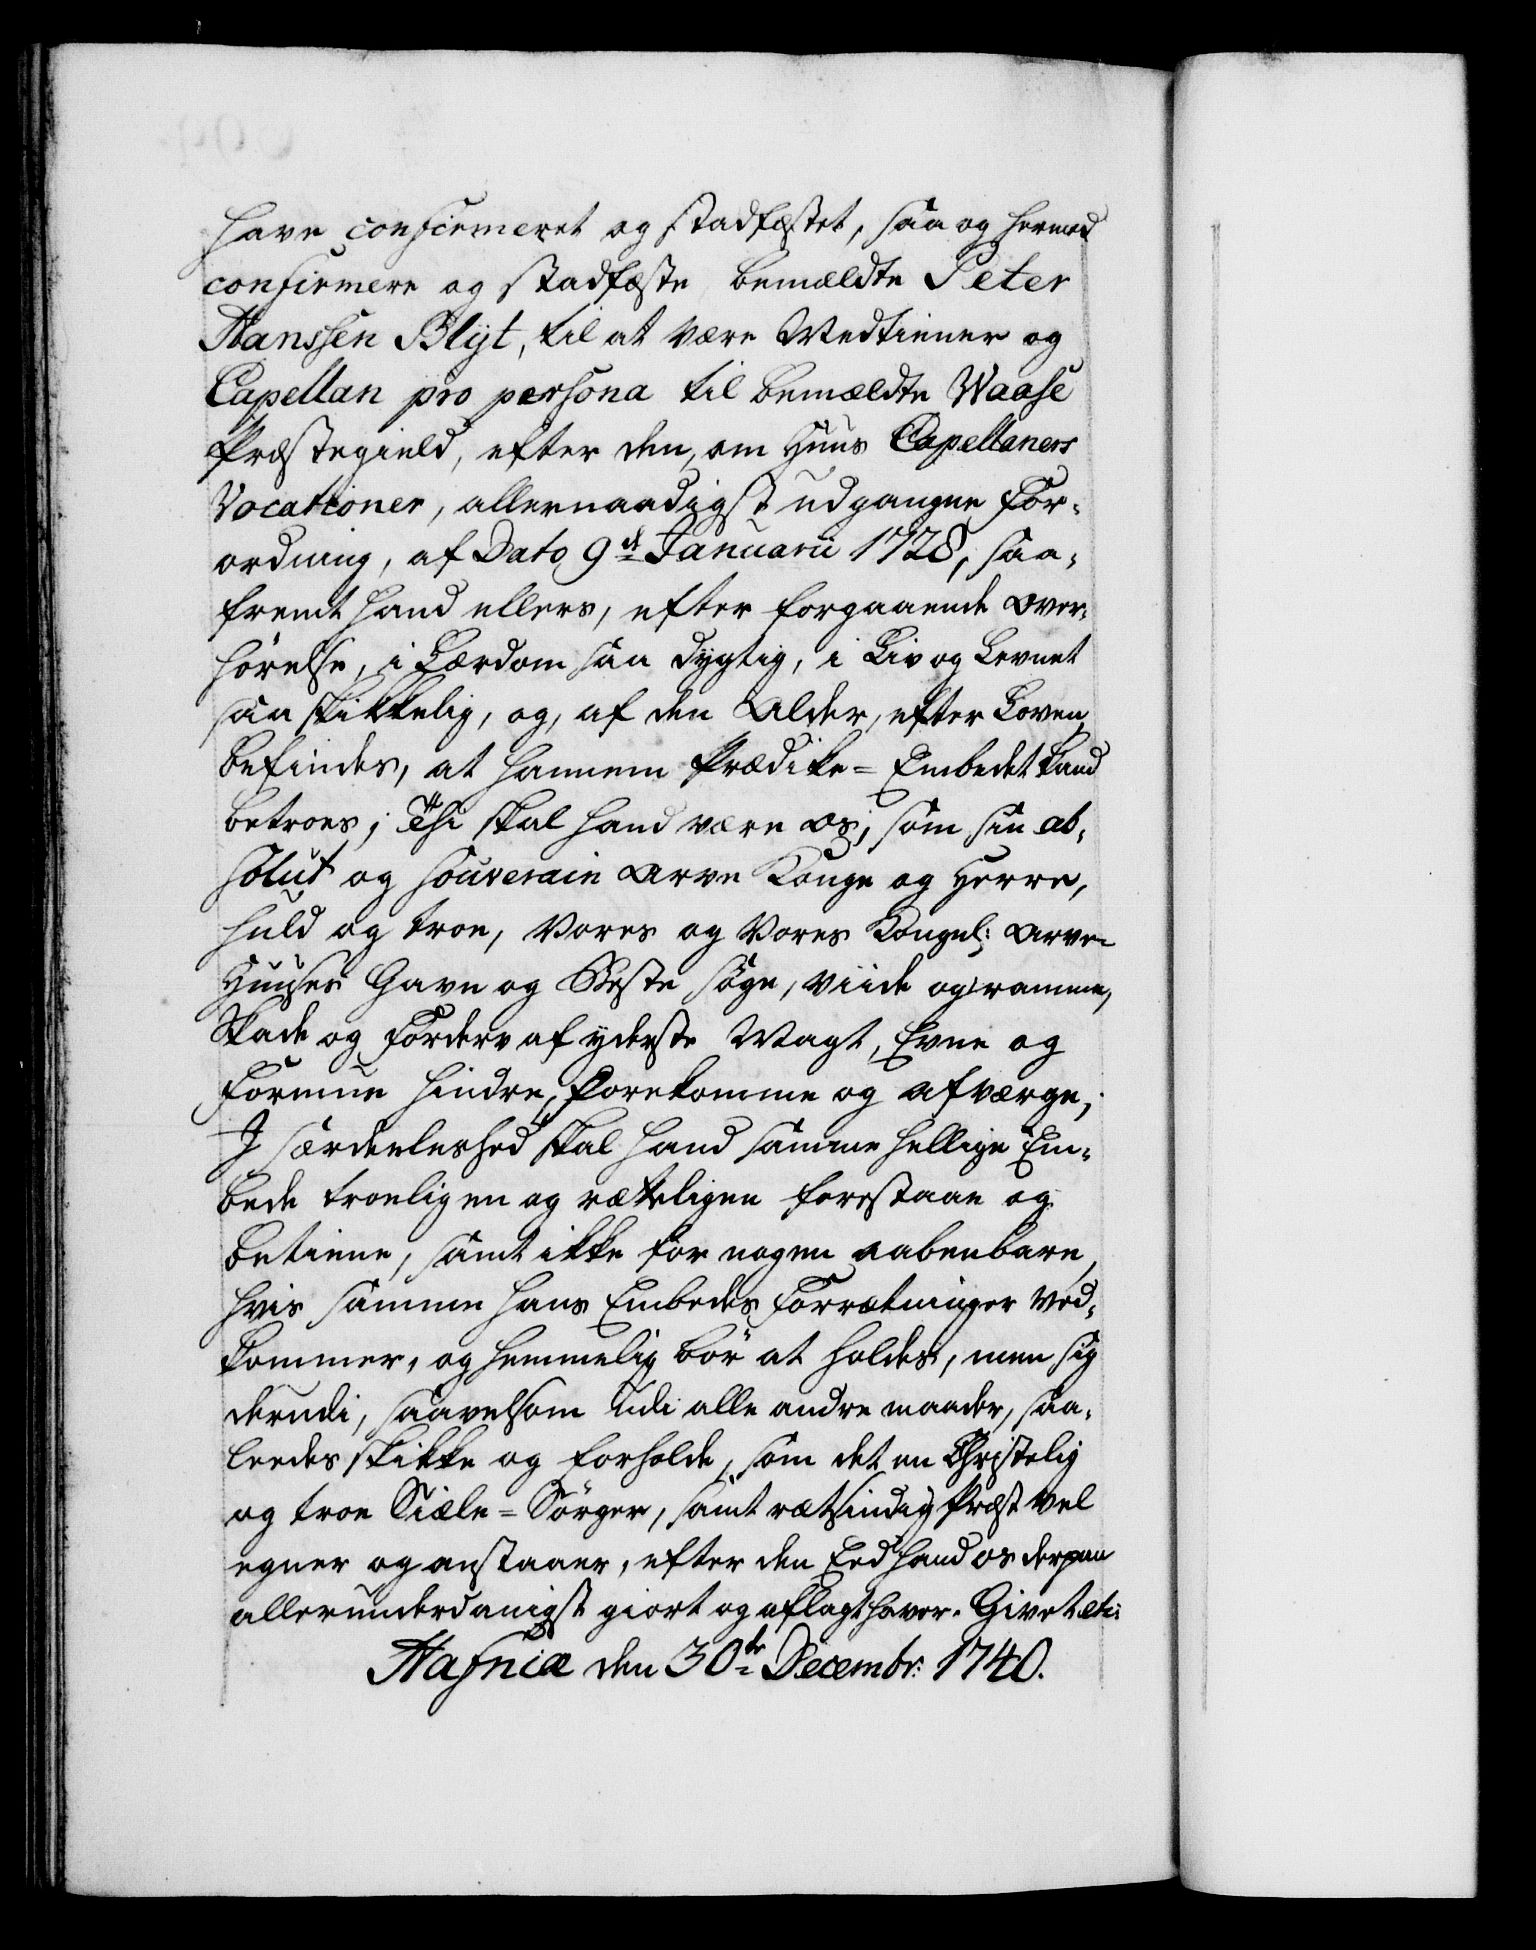 have confirmeret og stadfæstet, saa og hermed
confirmere og stadfæste bemældte Peter
Hanssen Blijt, til at være Medtiener og
Capellan pro persona til bemældte Waase
Præstegield, efter den, om Huus Capellaners
Vocationer, allernaadigst udgangne For-
ordning, af Dato 9de Januarii 1728, saa-
fremt hand ellers, efter forgaaende Over-
hørelse, i Lærdom saa dygtig, i Liv og Levnet
saa skikkelig, og, af den Alder, efter Loven,
befindes, at hannem Prædike-Embedet kand
betroes; Thi skal hand være os, som sin ab-
solut og souverain Arve Konge og Herre,
huld og troe, Vores og Vores Kongel: Arve-
Huuses Gavn og Beste søge, viide og ramme,
Skade og Forderv af yderste Magt, Evne og
Formue hindre, forekomme og afværge,
I særdeeleshed skal hand samme hellige Em-
bede troeligen og rætteligen forestaae og
betiene, samt ikke for nogen aabenbare,
hvis samme hans Embedes Forrætninger ved-
kommer, og hemmelig bør at holdes, men sig
derudi, saavelsom udi alle andre maader, saa-
leedes skikke og forholde, som det en Christelig
og troe Siæle-Sørger, samt rætsindig Præst vel
egner og anstaaer, efter den Eed hand os derpaa
allerunderdanigst giort og aflagt haver. Givet etc:
Hafniæ den 30te Decembr: 1740.